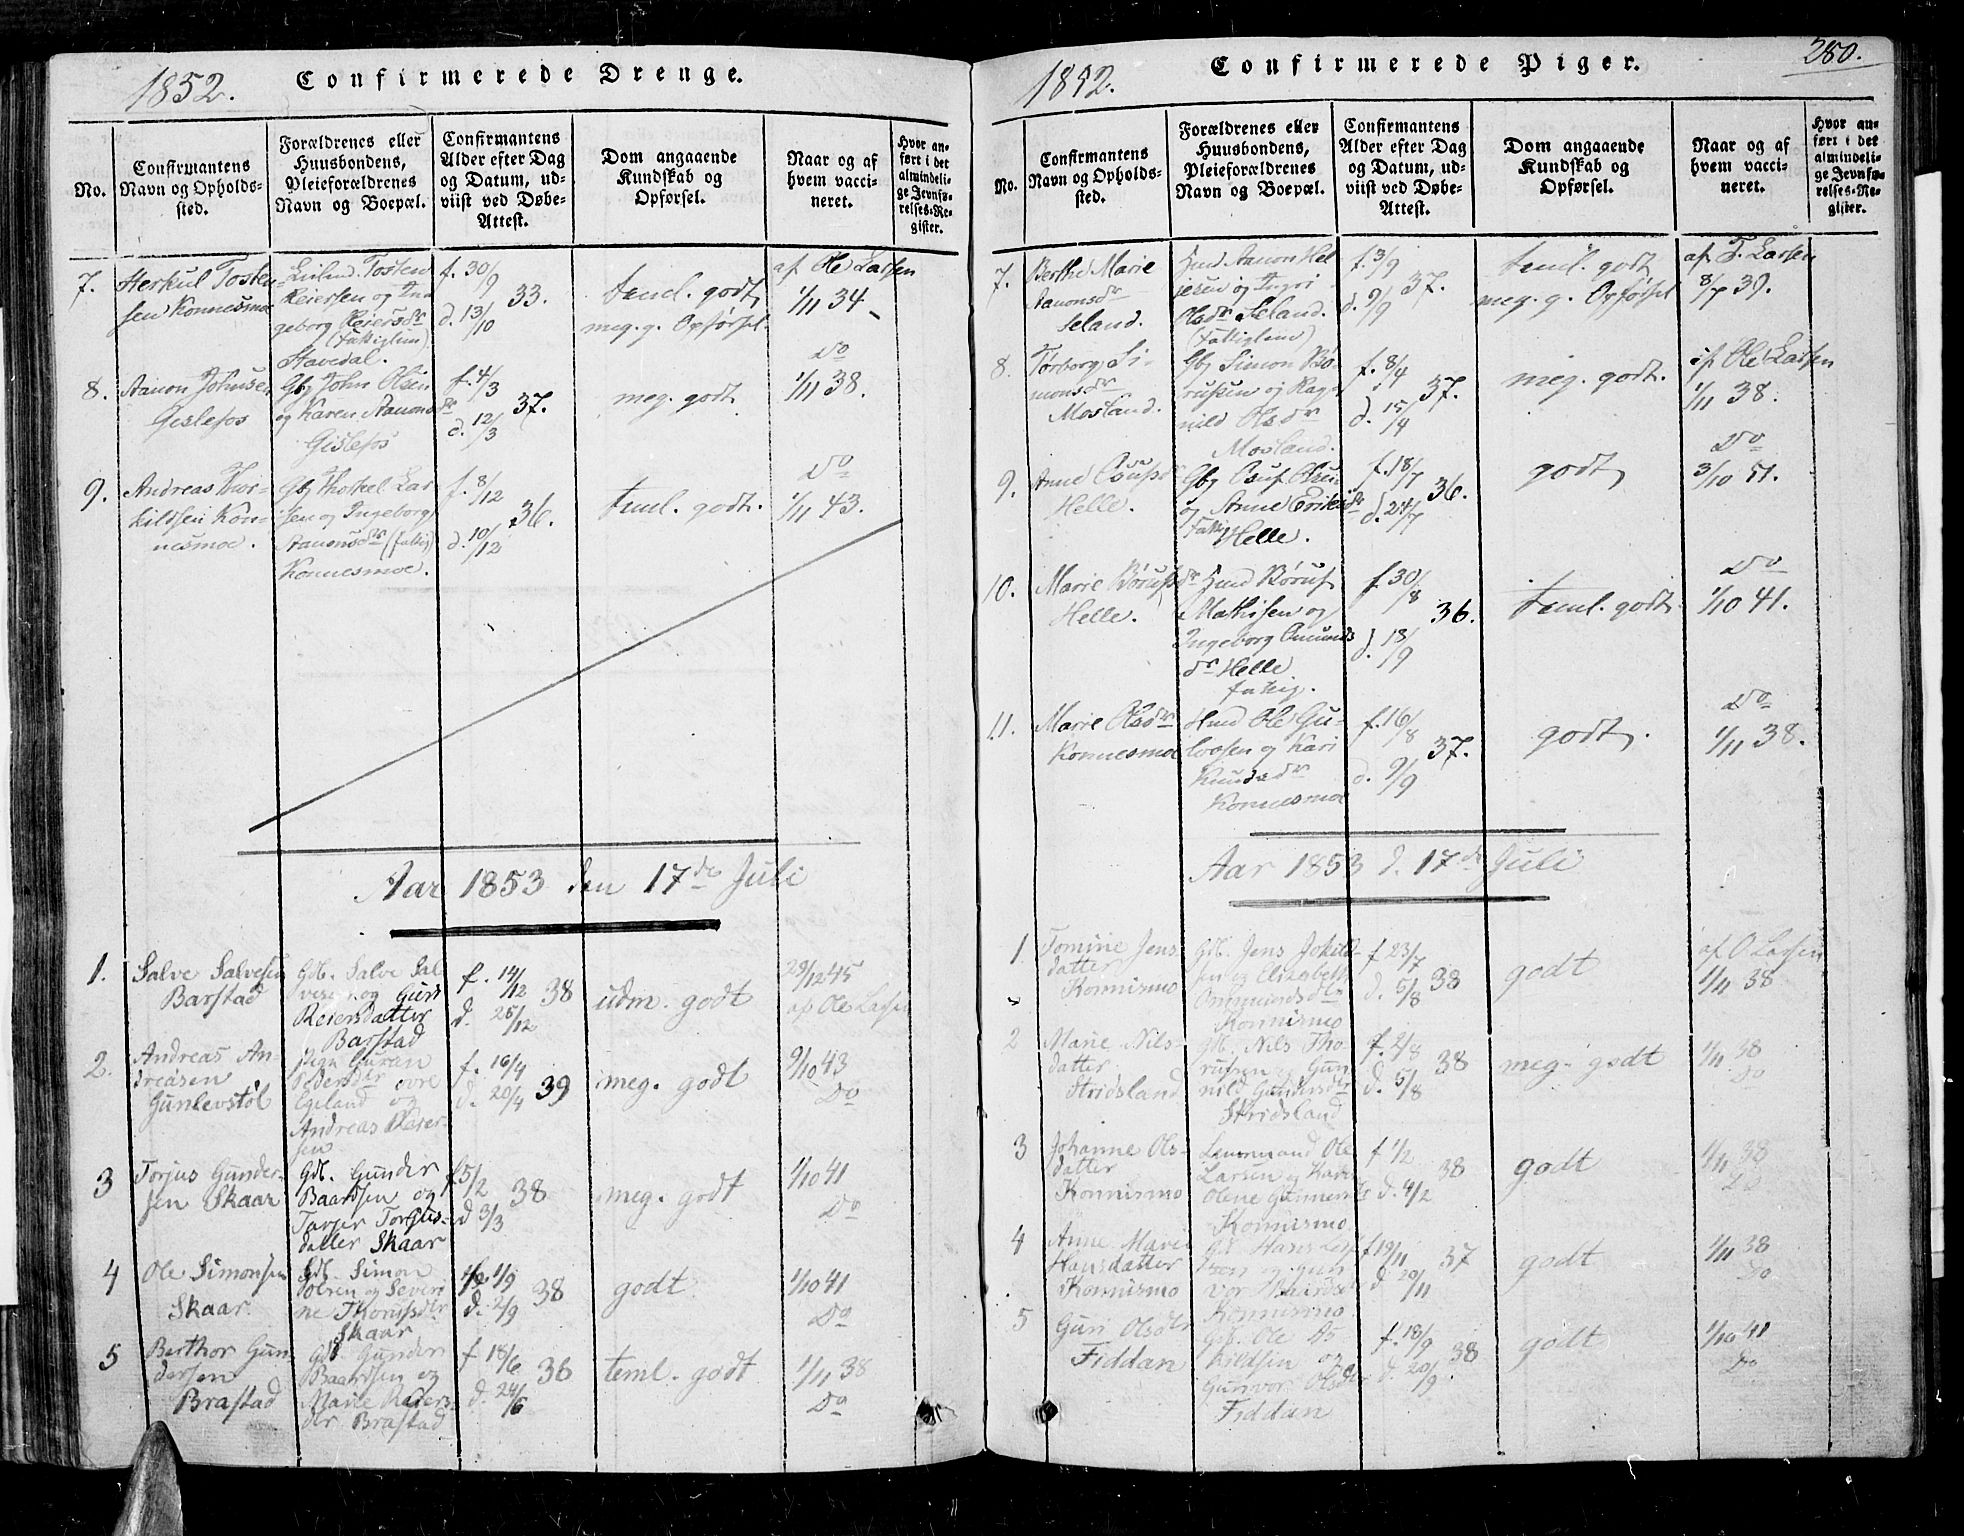 1852.
Confirmerede Drenge.
No.
Confirmantens Navn og Opholds-sted.
Forældrenes eller Huusbondens, Pleieforældrenes Navn og Boepæl.
Confirmantens Alder efter Dag og Datum, ud-viist ved Døbe-Attest.
Dom angaaende Kundskab og Opførsel.
Naar og af hvem vacci-neret.
Hvor an-ført i det almindeli-ge Jevnfø-relses-Re-gister.
7.
Herkul Tosten-
sen Konnesmoe
Tosten
Reiersen og In
geborg Reiersdr
Stavedal.
f. 30/9
33.
d. 13/10
teml. godt
meg. g. Opførsel.
af Ole Larsen
1/11 34
8.
Aanon Johnsen
Gislefos
Gbr John Olsen
og Karen Aanonsdr
Gislefos
f. 4/3
37.
d. 12/3
meg. godt
Do
1/11 38.
9.
Andreas Thor-
kildsen Kon-
nesmoe.
Gbr Thorkel Lar
sen og Ingeborg
Aanonsdr (fattig)
Konnesmoe.
f. 8/12
36.
d. 10/12
teml. godt.
Do
1/11 43.
Aar 1853 den 17de Juli
1.
Salve Salvesen
Barstad
Gdb. Salve Sal
vesen og Guri
Reiersdatter
Barstad
f. 14/12
38
d. 25/12
udm. godt
29/12 45
af Ole Larsen
2.
Andreas An-
dreasen
Gunlevstøl
Pige Guran
Pedersdtr øvre
Egeland og
Andreas Reier-
sen
f. 16/4
39
d. 20/4
meg. godt
9/10 43
Do
3
Torjus Gunder-
sen Skaar
Gdb. Gunder
Baardsen og
Tarjer Torjus-
datter Skaar
f 5/2
38
d 3/3
meg. godt
1/10 41
Do
4
Ole Simonsen
Skaar
Gdb. Simon
Olsen og Severi
ne Thorufsdtr
Skaar
1/9
38
d. 2/9
godt
1/10 41
Do
5
Berthor Gun-
dersen
Brastad
Gdb Gunder
Baardsen og
Marie Reiers-
dtr. Brastad
f 18/6
38
d. 24/6
teml. godt
1/11 38
Do
280.
1852.
Confirmerede Piger.
No.
Confirmantens Navn og Opholds-sted.
Forældrenes eller Huusbondens, Pleieforældrenes Navn og Boepæl.
Confirmantens Alder efter Dag og Datum, ud-viist ved Døbe-Attest.
Dom angaaende Kundskab og Opførsel.
Naar og af hvem vacci-neret.
Hvor an-ført i det almindeli-ge Jevnfø-relses-Re-gister.
7.
Berthe Marie
Aanonsdr
Seland.
Hmd Aanon Hel
gesen og Ingri
Olsdr Seland.
(Fattiglem)
f. 3/9
37.
d. 9/9
teml. godt
meg. g. Opførsel
af T. Larsen
8/7 39.
8.
Tørborg Si-
monsdr
Mosland.
Gbr Simon Bø-
rufsen og Rag-
nild Olsdr
Mosland.
f. 8/4
37.
d. 15/4
meg. godt.
af Ole Larsen
1/11 38.
9.
Anne Osufsdr
Helle.
Gbr Osuf Olsen
og Anne Eriksdr
Helle.
f. 18/7
36.
d. 24/7
godt
Do
3/10 51.
10.
Marie Børufsdr
Helle.
Hmd Børuf
Mathisen og
Ingeborg Omunds
dr Helle
fattig.
f. 30/8
36.
d. 18/9
teml. godt
Do
1/10 41.
11.
Marie Olsdr
Konnesmoe
Hmd Ole Gu-
lovsen og Kari
Knudsdr
Konnesmoe
f. 16/8
37.
d. 9/9
godt.
Do
1/11 38.
Aar 1853 d. 17de Juli
1
Tomine Jens
datter
Konnismo
Gdb. Jens Jokild
sen og Elisabeth
Ommundsdtr
Konnismo
f 23/7
38
d. 5/8
godt
af O Larsen
1/11 38
2
Marie Nils-
datter
Stridsland
Gdb. Nils Tho
rufsen og Gun
nild Gundersdtr
Stridsland
f. 2/8
38
d. 5/8
meg. godt
1/11 38
Do
3
Johanne Ols-
datter
Konnismo
Lensmand Ole
Larsen og Karen
Olene
Konnismo
f 1/2
38
d. 4/2
godt
1/11 38
Do
4
Anne Marie
Hansdatter
Konnismo
Konnismo
f 19/11
37
d 20/11
godt
1/11 38
Do
5
Guri Olsdtr
Fiddan
Gdb. Ole As-
kildsen og
Gunvor Olsdtr
Fiddan
f. 18/9
38
d. 20/9.
godt
1/10 41
Do